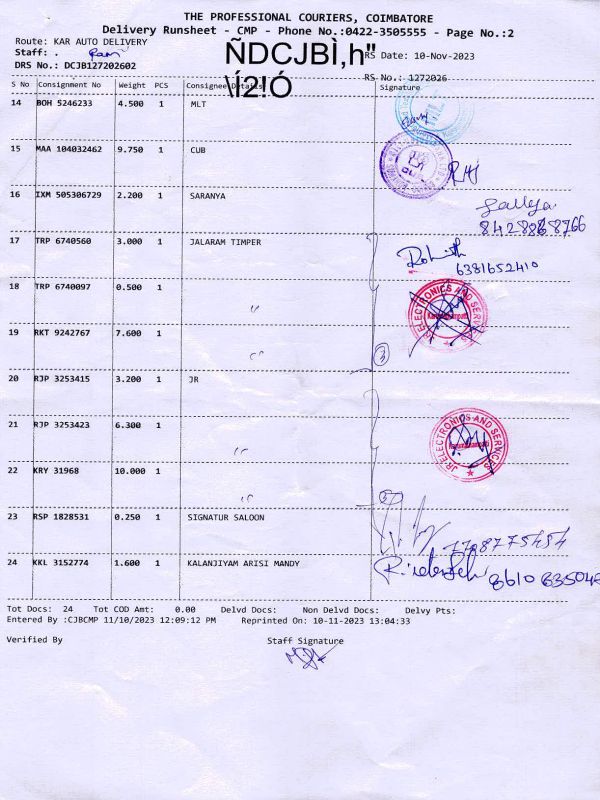 THE PROFESSIONAL COURIERS, COIMBATORE
Delivery Runsheet - CMP - Phone No.:0422-3505555 - Page No.:2
Route: KAR AUTO DELIVERY
Staff: . Ram
ÑDCJBÌ,h"
RS Date: 10-Nov-2023
DRS No.: DCJB127202602
\Í2!Ó
RS No.: 1272026
S No Consignment No Weight PCS Consignee Details Signature
14 BOH 5246233 4.500 1 MLT
15 MAA 104032462 9.750 1 CUB
16 IXM 505306729 2.200 1 SARANYA
17 TRP 6740560 3.000 1 JALARAM TIMPER Rohith
6381652410
18 TRP 6740097 0.500 1 "
JR ELECTRONICS AND SERVICES
19 RKT 9242767 7.600 1 "
3
20 RJP 3253415 3.200 1 JR
JR ELECTRONICS AND SERVICES
21 RJP 3253423 6.300 1 "
22 KRY 31968 10.000 1 "
23 RSP 1828531 0.250 1 SIGNATUR SALOON
7708775454
24 KKL 3152774 1.600 1 KALANJIYAM ARISI MANDY
Tot Docs: 24 Tot COD Amt: 0.00 Delvd Docs: Non Delvd Docs: Delvy Pts:
Entered By :CJBCMP 11/10/2023 12:09:12 PM Reprinted On: 10-11-2023 13:04:33
Verified By Staff Signature